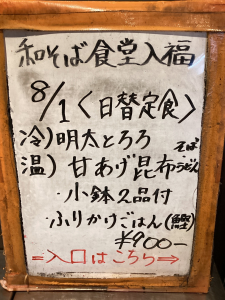 和そば食堂入福
8/1〈日替定食〉
冷）明太とろろ そば
温）甘あげ昆布 うどん
・小鉢2品付
・ふりかけごはん(鰹)
¥900-
=入口はこちら⇒